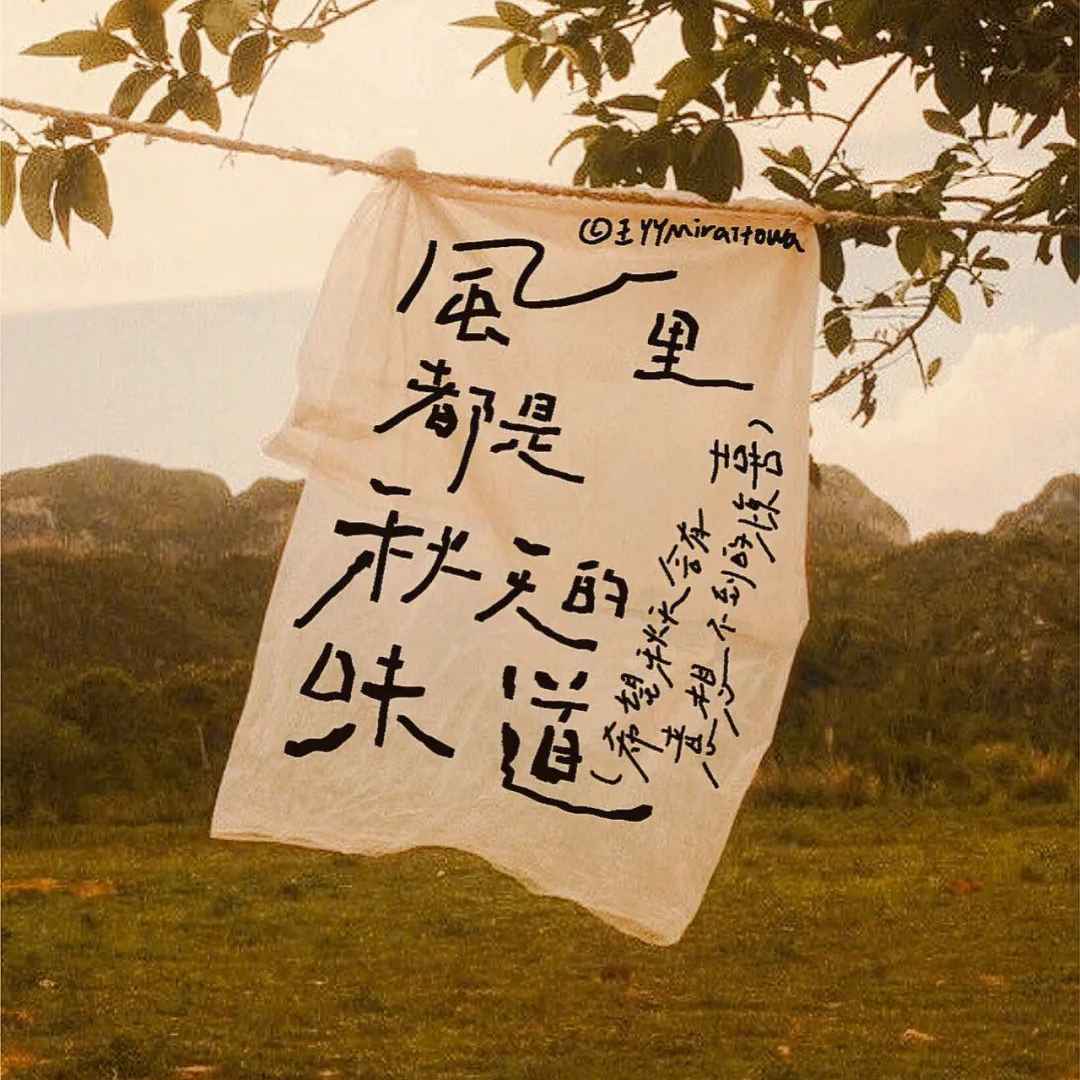 ©王YYMiraitowa
風里
都是
秋天的
味道
(希望秋天会有
意想不到的惊喜)